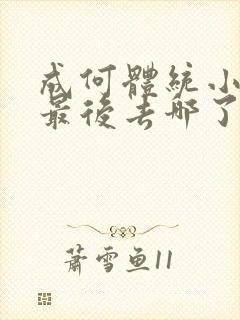 成何體統小
最後去哪了
蕭雪魚11